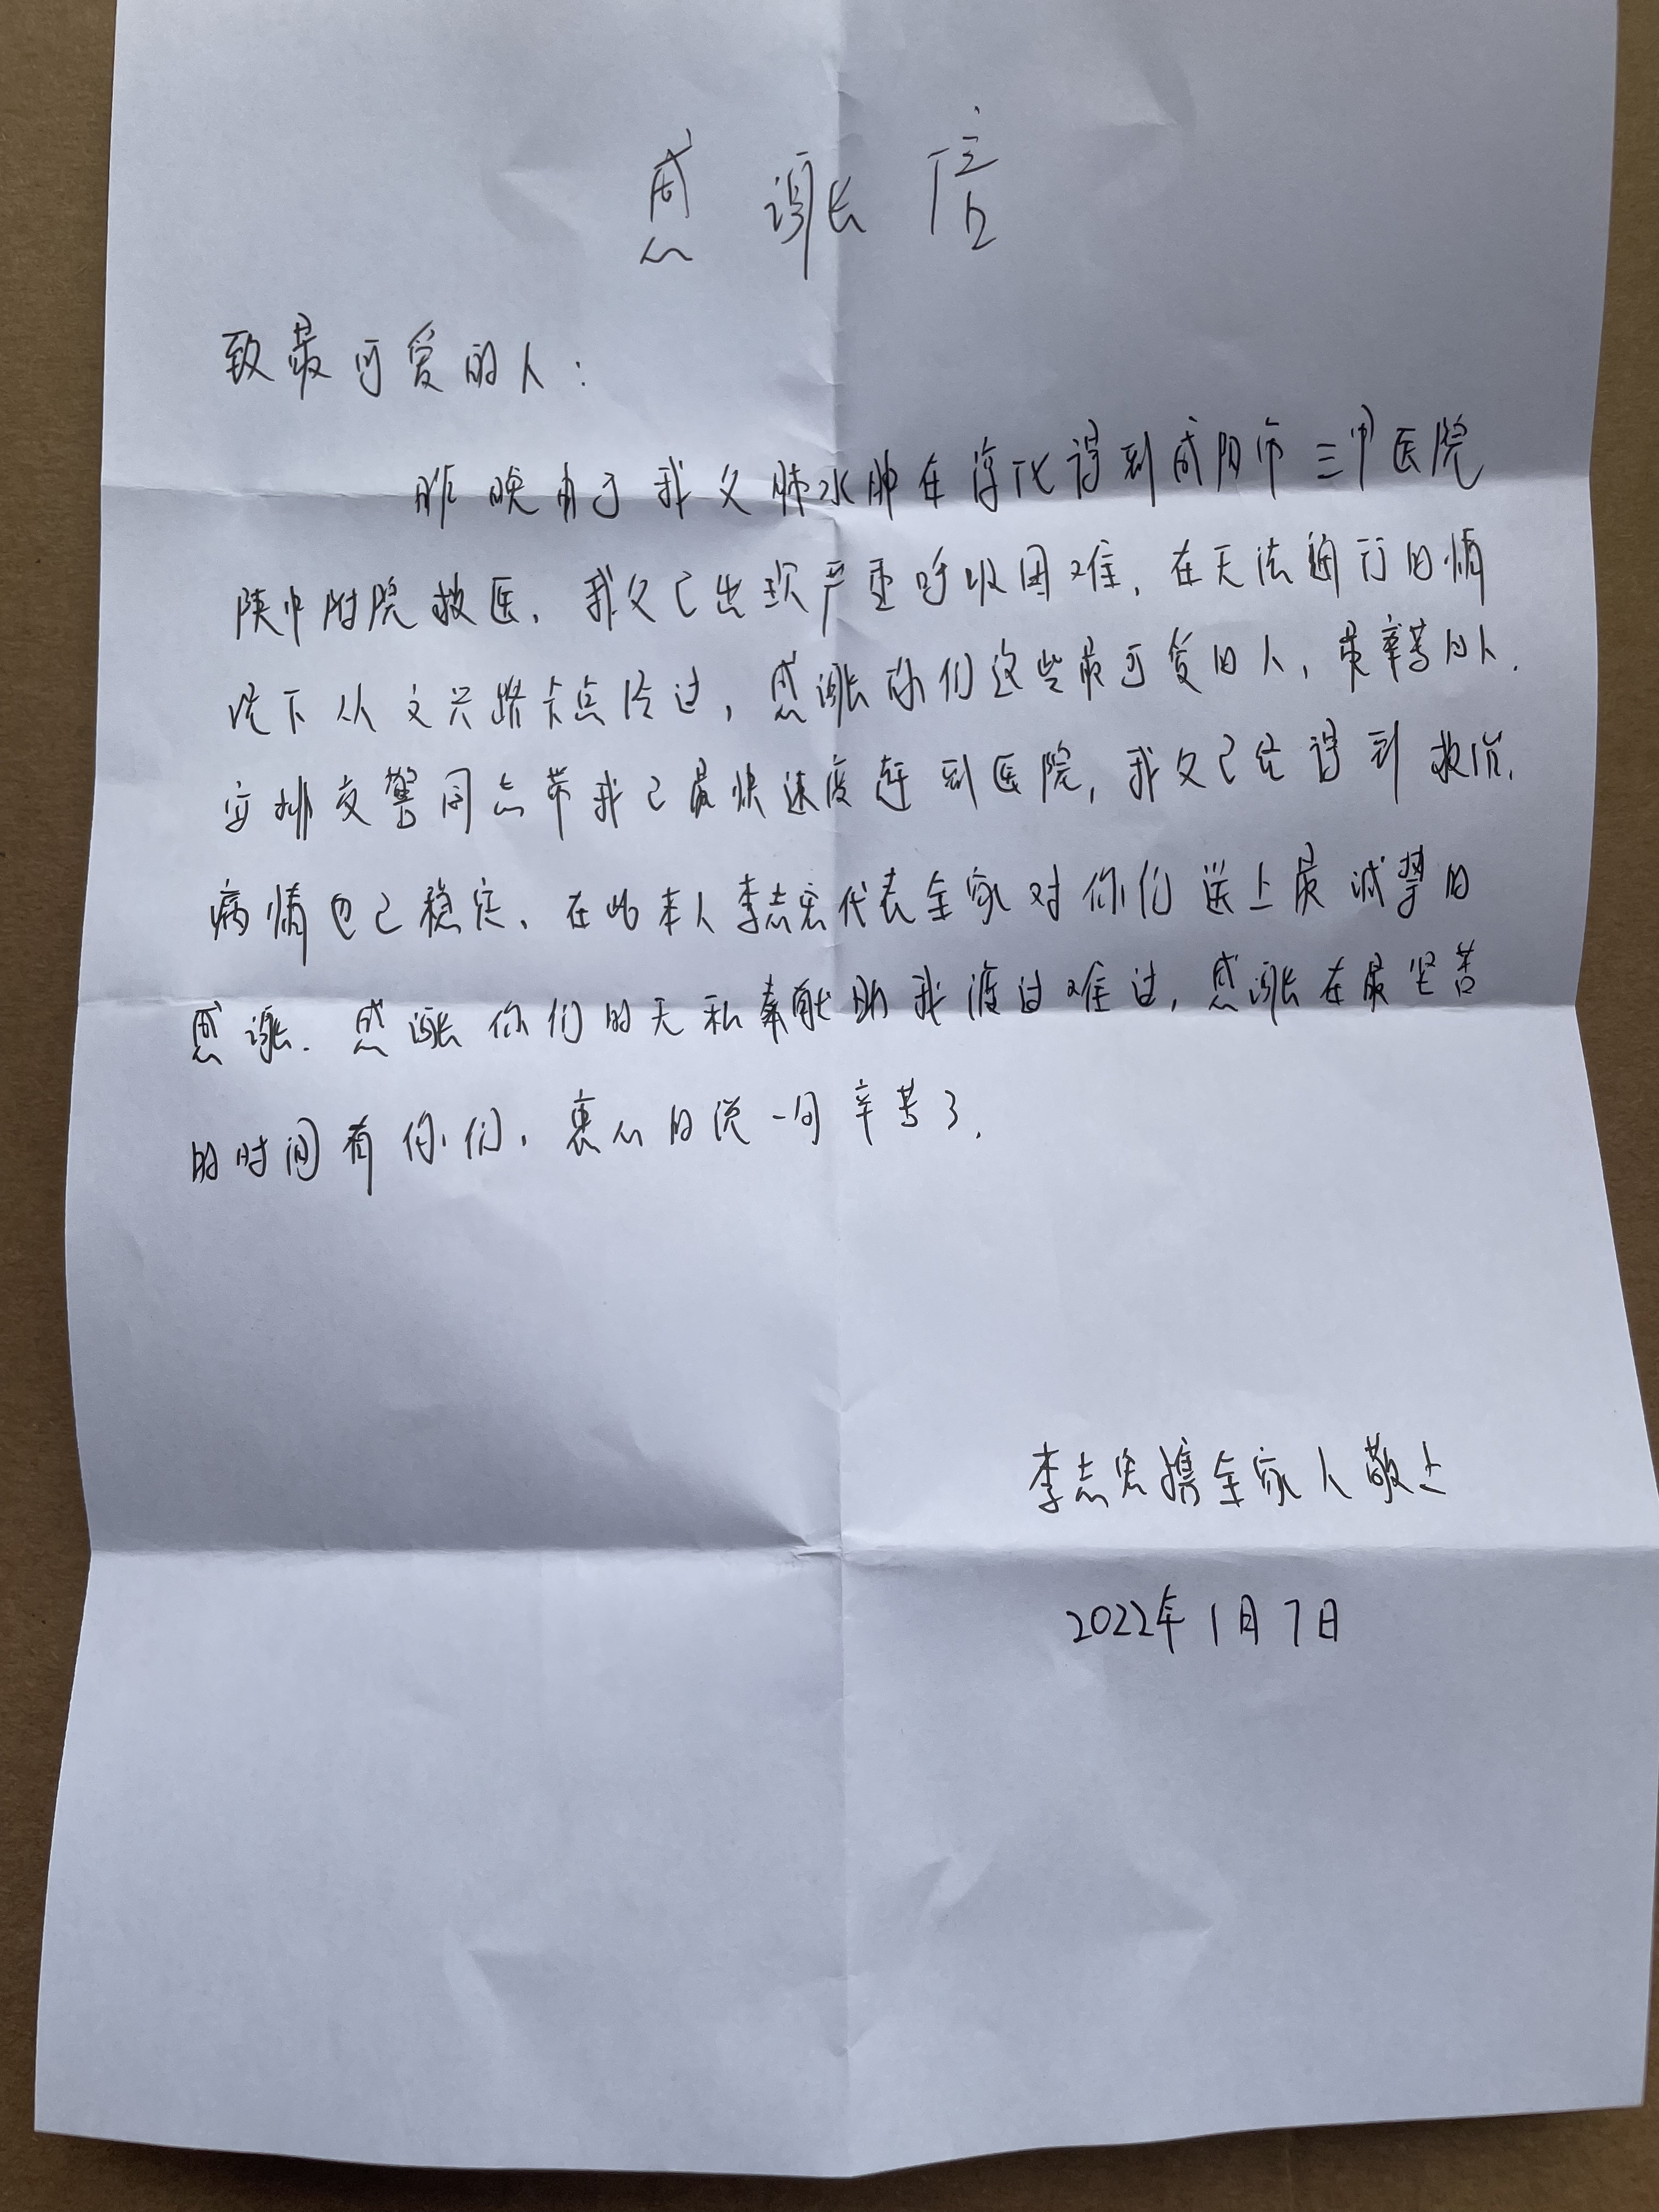 感谢信
致最可爱的人：
昨晚由于我父肺水肿在淳化得到咸阳市三甲医院
陕中附院救医，我父已出现严重呼吸困难，在无法通行的情
况下从文兴路卡点冷过，感谢你们这些最可爱的人，最辛苦的人.
安排交警同志带我已最快速度赶到医院，我父已经得到救治，
病情也已稳定，在此本人李志宏代表全家对你们送上最诚挚的
感谢. 感谢你们的无私奉献助我渡过难过，感谢在最坚苦
的时间有你们，衷心的说一句辛苦了.
李志宏携全家人敬上
2022年1月7日